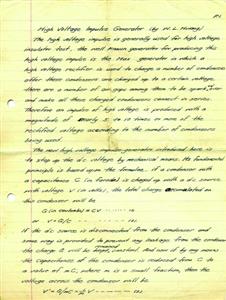 P1
High Voltage Impulse Generator (by W. L. Hwang)
The high voltage impulse is generally used for high voltage
insulator test. The well known generator for producing this
high voltage impulse is the Marx generator in which a
high voltage rectifier is used to charge a number of condensers
after these condensers are charged up to a certain voltage
there are a number of air gaps among them to spark over
and make all these charged condensers connect in series.
Therefore an impulse of high voltage is produced with a
magnitude of nearly 5 to 10 times or more of the
rectified voltage according to the number of condensers
being used.
The new high voltage impulse generator introduced here is
to step up the dc voltage by mechanical means. Its fundamental
principle is based upon the formula. If a condenser with
a capacitance C (in farads) is charged up with a dc source
with voltage V (in volts), the total charge accumulated on
this condenser will be
Q (in coulombs) = CV
or V = Q/C
If the dc source is disconnected from the condenser and
some way is provided to prevent any leakage from the condenser
the charge Q will be kept constant. And now if by any means
the capacitance of the condenser is reduced from C to
a value of mC, where m is a small fraction, then the
voltage across the condenser will be
V' = Q/mC = 1/m V